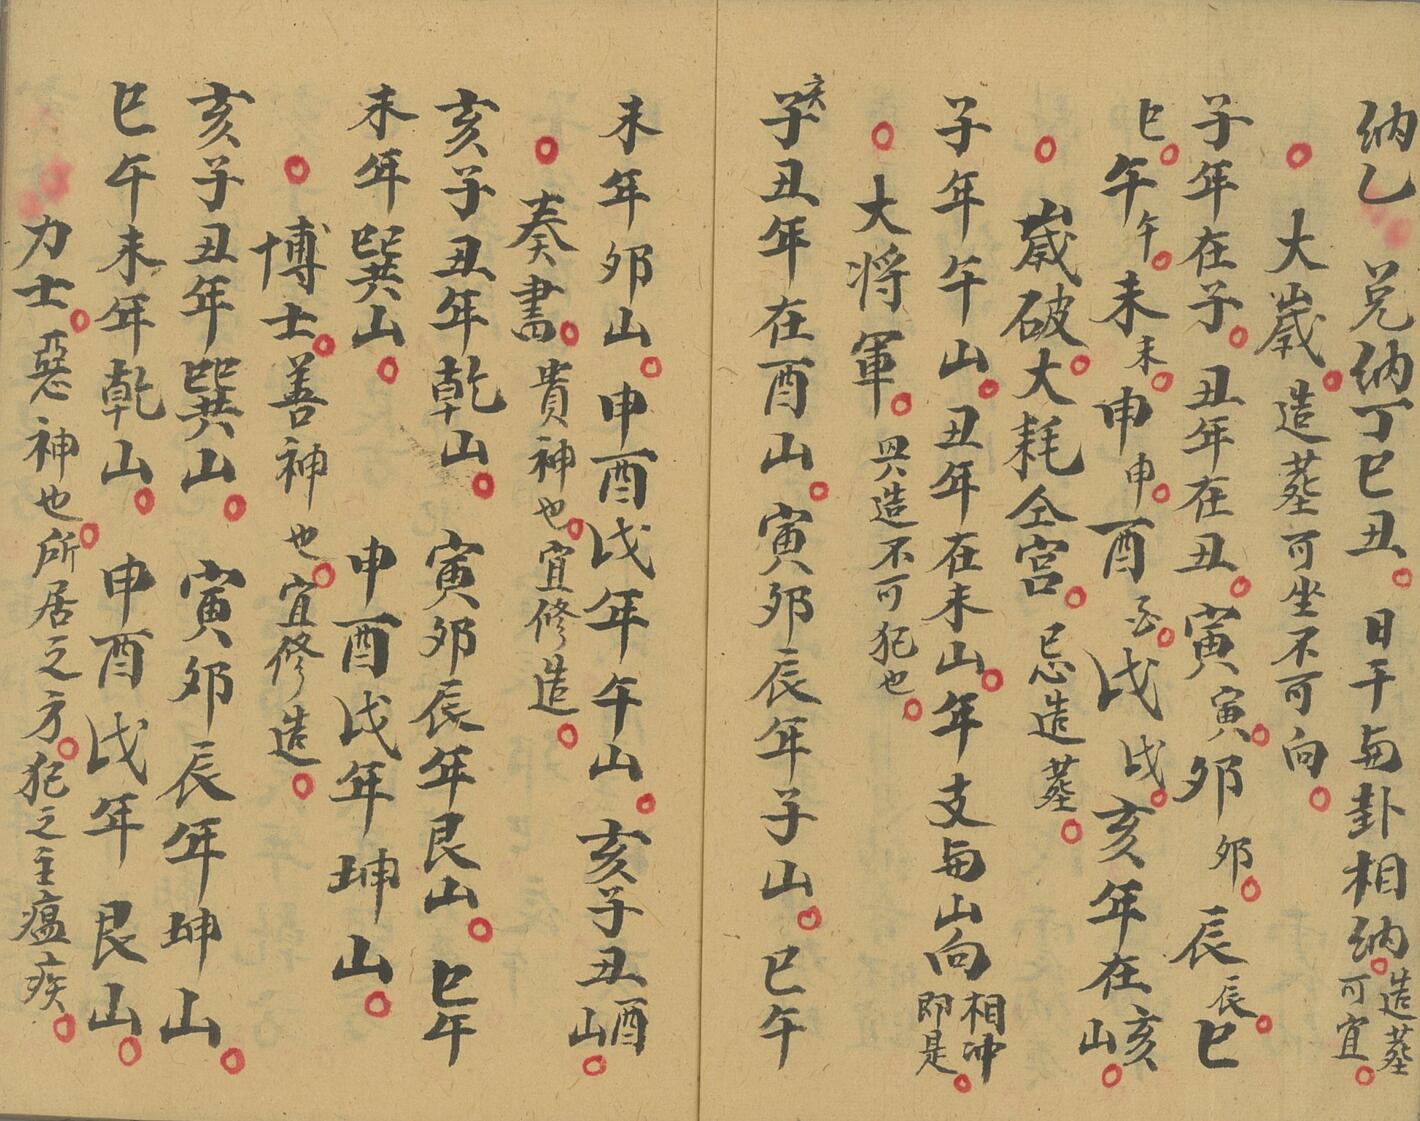 纳乙兑纳丁巳丑日干与卦相纳造葬可宜
大嵗造葬可坐不可向
子年在子丑年在丑寅寅卯卯辰辰巳
巳午午未未申申酉戌戌亥年在亥山
嵗破大耗仝宫忌造葬
子年午山丑年在未山年支与山向相冲即是
大将軍具造不可犯也
亥子丑年在酉山寅卯辰年子山巳午
未年卯山申酉戌年午山亥子丑酉山
奏書貴神也宜修造
亥子丑年乾山寅卯辰年艮山巳午
未年巽山申酉戌年坤山
博士善神也宜修造
亥子丑年巽山寅卯辰年坤山
巳午未年乾山申酉戌年艮山
力士惡神也所居之方犯之主瘟疾